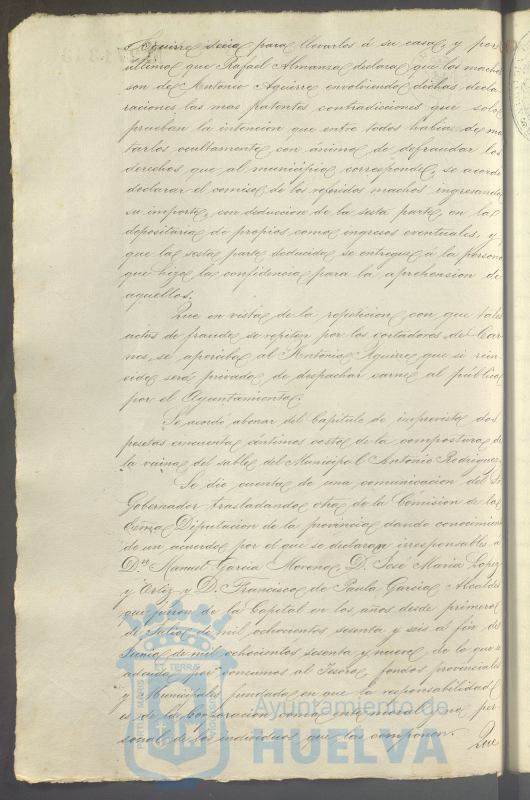 Aguirre seria para llevarlos á su casa, y por
ultimo que Rafael Almanza declara que los machos
son de Antonio Aguirre envolviendo dichas decla
raciones las mas patentes contradicciones que solo
prueban la intencion que entre todos habia de ma
tarlos ocultamente con ánimo de defraudar los
derechos que al municipio corresponde, se acordó
declarar el comiso de los referidos machos ingresando
su importe, con deduccion de la sesta parte, en la
depositaria de propios como ingresos eventuales, y
que la sesta parte deducida se entregue á la persona
que hizo la confidencia para la aprehension de
aquellos.
Que en vista de la repeticion con que tales
actos de fraude se repiten por los cortadores de Car
nes, se aperciba al Antonio Aguirre que si rein
cide será privado de despachar carne al público
por el Ayuntamiento.
Se acordó abonar del Capitulo de imprevistos dos
pesetas cincuenta céntimos costo de la compostura de
la vaina del sable del Municipal Antonio Rodriguez.
Se dio cuenta de una comunicacion del Sr
Gobernador trasladando otra de la Comision de la
Exma Diputacion de la provincia dando conocimiento
de un acuerdo por el que se declaran irresponsables a
D.n Manuel Garcia Moreno, D. José Maria Lopez
y Ortiz y D. Francisco de Paula Garcia, Alcaldes
que fueron de la Capital en los años desde primero
de Julio de mil ochocientos sesenta y seis á fin de
Junio de mil ochocientos sesenta y nueve de lo que se
adeuda por consumos al Tesoro, fondos provinciales
y Municipales fundado en que la responsabilidad
es de la Corporacion como ente moral y no per
sonal de los individuos que las componen.
Que
Ayuntamiento de
HUELVA